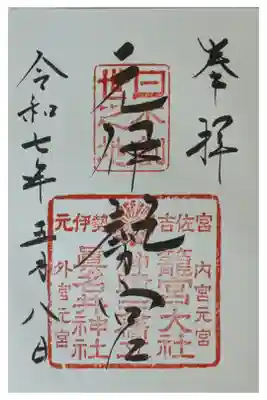 奉拝
元伊勢
令和七年五月八日
吉佐宮
内宮元宮
籠宮大社
元伊勢
眞名井神社
外宮元宮